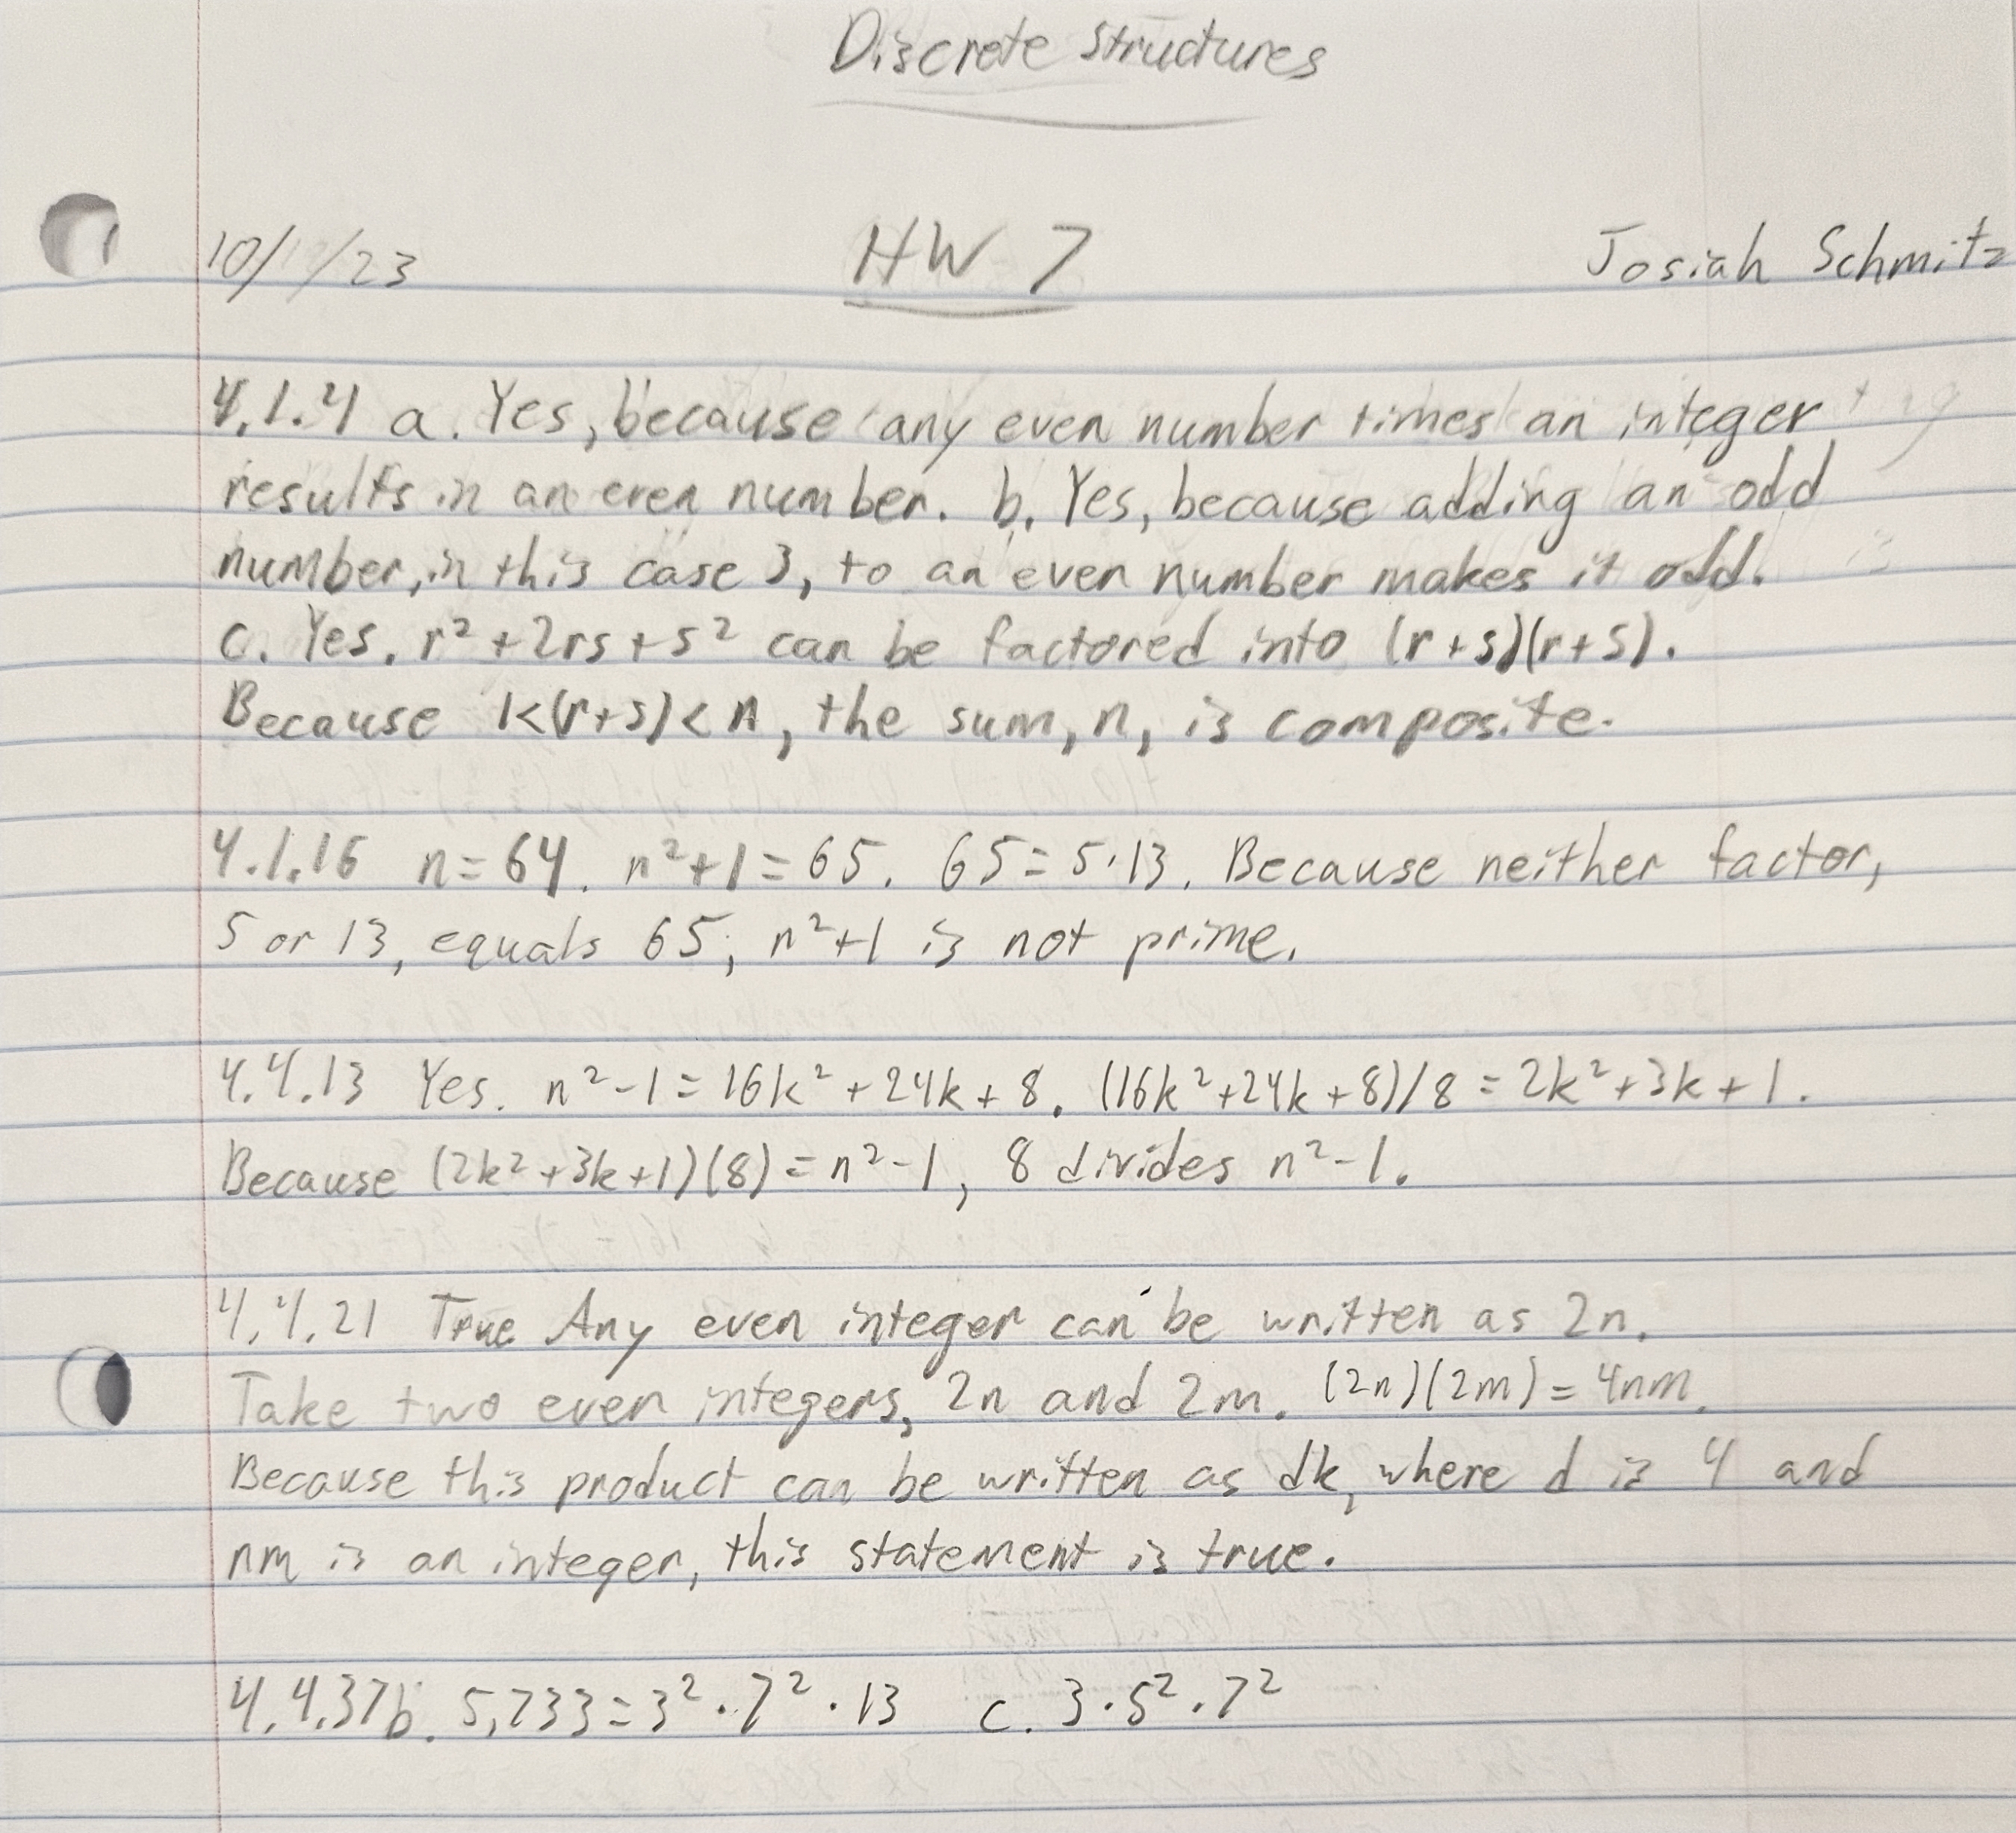 Discrete Structures
10/ /23 HW 7 Josiah Schmitz
4.1.4 a. Yes, because any even number times an integer
results in an even number. b. Yes, because adding an odd
number, in this case 3, to an even number makes it odd.
c. Yes. r²+2rs+s² can be factored into (r+s)(r+s).
Because 1<(r+s)<n, the sum, n, is composite.
4.1.16 n=64. n²+1=65. 65=5·13. Because neither factor,
5 or 13, equals 65, n²+1 is not prime.
4.4.13 Yes. n²-1=16k²+24k+8. (16k²+24k+8)/8=2k²+3k+1.
Because (2k²+3k+1)(8)=n²-1, 8 divides n²-1.
4.4.21 True Any even integer can be written as 2n.
Take two even integers, 2n and 2m. (2n)(2m)=4nm.
Because this product can be written as dk, where d is 4 and
nm is an integer, this statement is true.
4.4.37b. 5,733=3²·7²·13 c. 3·5²·7²